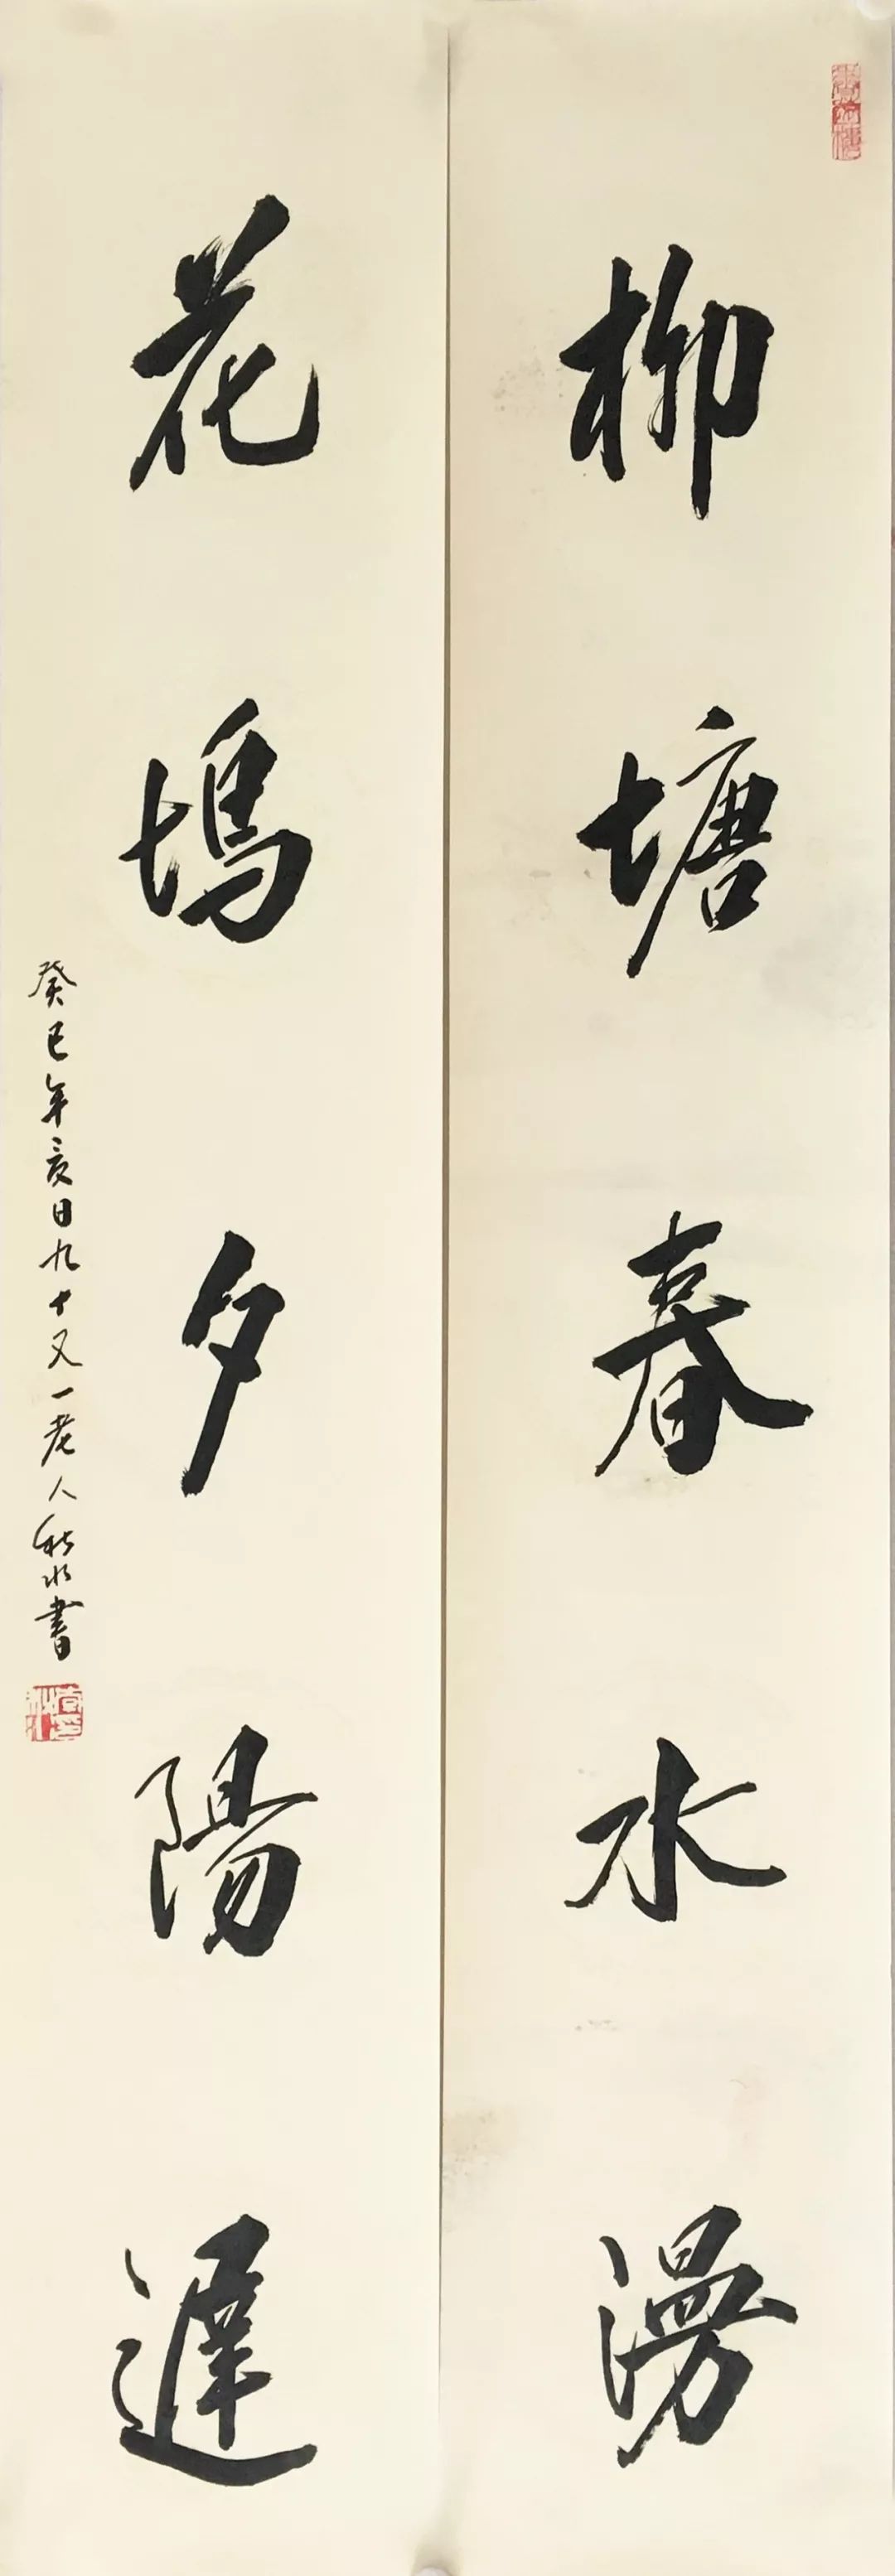 柳塘春水漫
花塢夕陽遲
癸巳年亥日九十又一老人秋水書